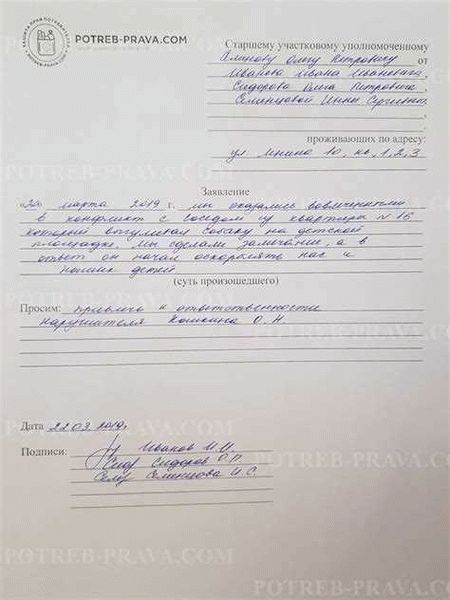 POTREB-PRAVA.COM
Старшему участковому уполномоченному
Олегу Петровичу от
Иванова Ивана Ивановича,
Сидорова Олега Петровича,
Семенцовой Инны Сергеевны
проживающих по адресу:
ул Мнина 10, кв, 1, 2, 3
Заявление
«20» марта 2019 г. мы оказались вовлеченными
в конфликт с соседом из квартиры №16
который выгуливал собаку на детской
площадке. Мы сделали замечание, а в
ответ он начал оскорблять нас и
наших детей
(суть произошедшего)
Просим: привлечь к ответственности
нарушителя Кошкина О.Н
Дата 22.03.2019г.
Подписи: Иванов И.И.
Сидоров О.П.
Семенцова И.С.
POTREB-PRAVA.COM